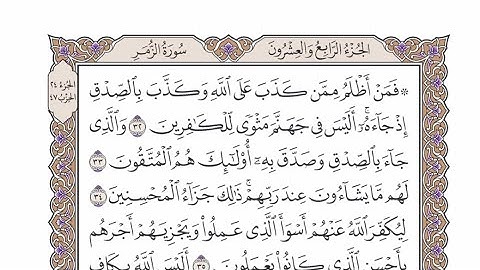 سُورَةُ الزُّمَرِ
الجُزْءُ الرَّابِعُ وَالعِشْرُونَ
الجُزْءُ ٢٤
الحِزْبُ ٤٧
۞ فَمَنْ أَظْلَمُ مِمَّن كَذَبَ عَلَى ٱللَّهِ وَكَذَّبَ بِٱلصِّدْقِ
إِذْ جَآءَهُۥٓۚ أَلَيْسَ فِي جَهَنَّمَ مَثْوًى لِّلْكَٰفِرِينَ ٣٢ وَٱلَّذِي
جَآءَ بِٱلصِّدْقِ وَصَدَّقَ بِهِۦٓ أُوْلَٰٓئِكَ هُمُ ٱلْمُتَّقُونَ ٣٣
لَهُم مَّا يَشَآءُونَ عِندَ رَبِّهِمْۚ ذَٰلِكَ جَزَآءُ ٱلْمُحْسِنِينَ ٣٤
لِيُكَفِّرَ ٱللَّهُ عَنْهُمْ أَسْوَأَ ٱلَّذِي عَمِلُواْ وَيَجْزِيَهُمْ أَجْرَهُم
بِأَحْسَنِ ٱلَّذِي كَانُواْ يَعْمَلُونَ ٣٥ أَلَيْسَ ٱللَّهُ بِكَافٍ